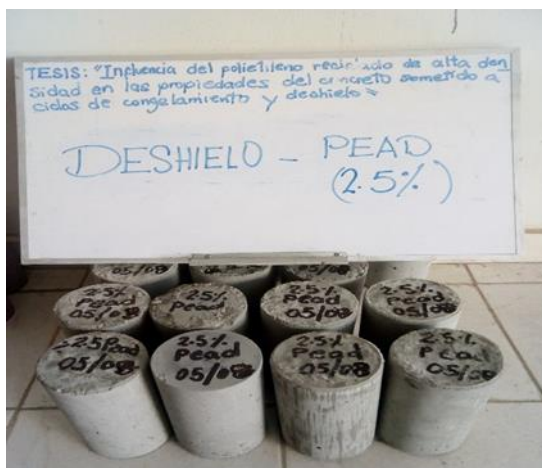 TESIS: "Influencia del polietileno reciclado de alta den
sidad en las propiedades del concreto sometido a
ciclos de congelamiento y deshielo"
DESHIELO - PEAD
(2.5%)
05/08
05/08
2.5%
Pead
05/08
2.5%
Pead
2.5%
Pead
05/08
2.5%
Pead
05/08
2.5 Pead
05/08
2.5%
Pead
05/08
2.5%
Pead
05/08
2.5%
Pead
05/08